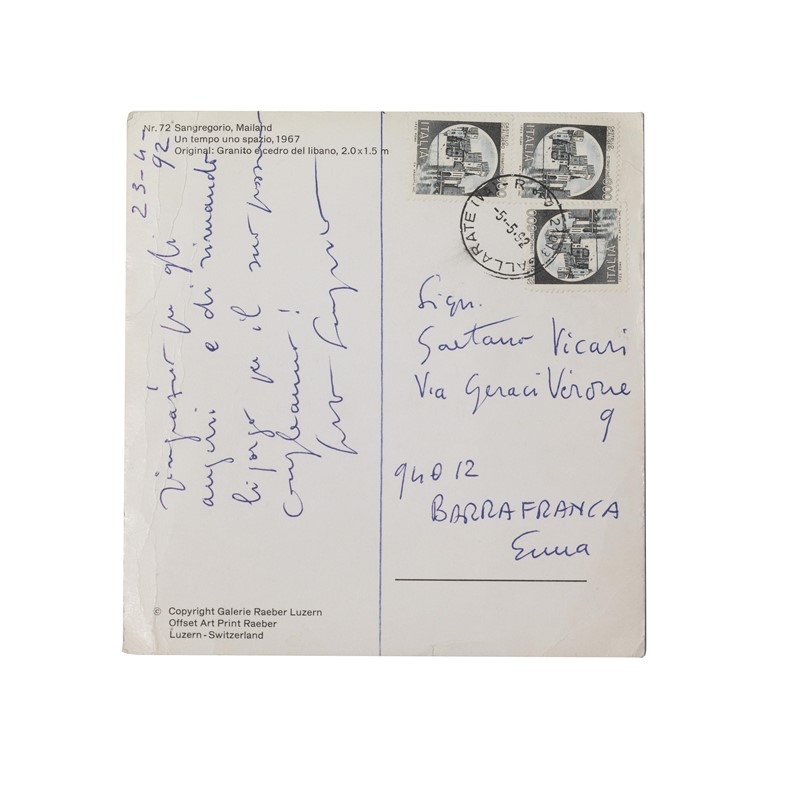 Nr. 72 Sangregorio, Mailand
Un tempo uno spazio, 1967
Original: Granito e cedro del libano, 2.0 x 1.5 m
23-4-92
ringrazio per gli
auguri e di rimando
li porgo per il suo prossimo
compleanno!
© Copyright Galerie Raeber Luzern
Offset Art Print Raeber
Luzern - Switzerland
ITALIA
ITALIA
ITALIA
GALLARATE
-5.-5.92
Sign.
Gaetano Vicari
Via Geraci Verone
9
94012
BARRAFRANCA
Enna